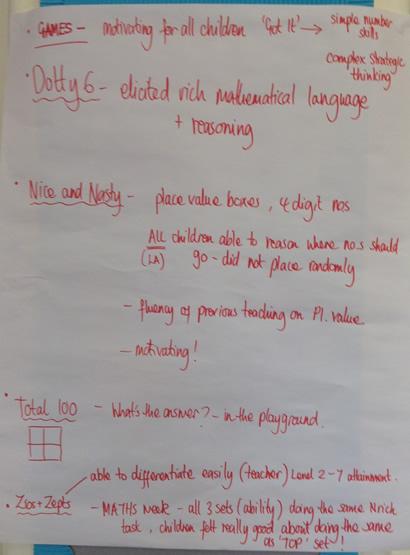 · GAMES – motivating for all children 'Got It' → simple number skills
complex strategic thinking
Dotty 6 – elicited rich mathematical language
+ reasoning
· Nice and Nasty – place value boxes, 4 digit nos
ALL children able to reason where no.s should
(LA) go – did not place randomly
– fluency of previous teaching on Pl. value
– motivating!
· Total 100 – What's the answer? – in the playground.
able to differentiate easily (teacher) Level 2–7 attainment.
· Zios + Zepts – MATHS Week – all 3 sets (ability) doing the same Nrich
task, children felt really good about doing the same
as 'TOP' set!